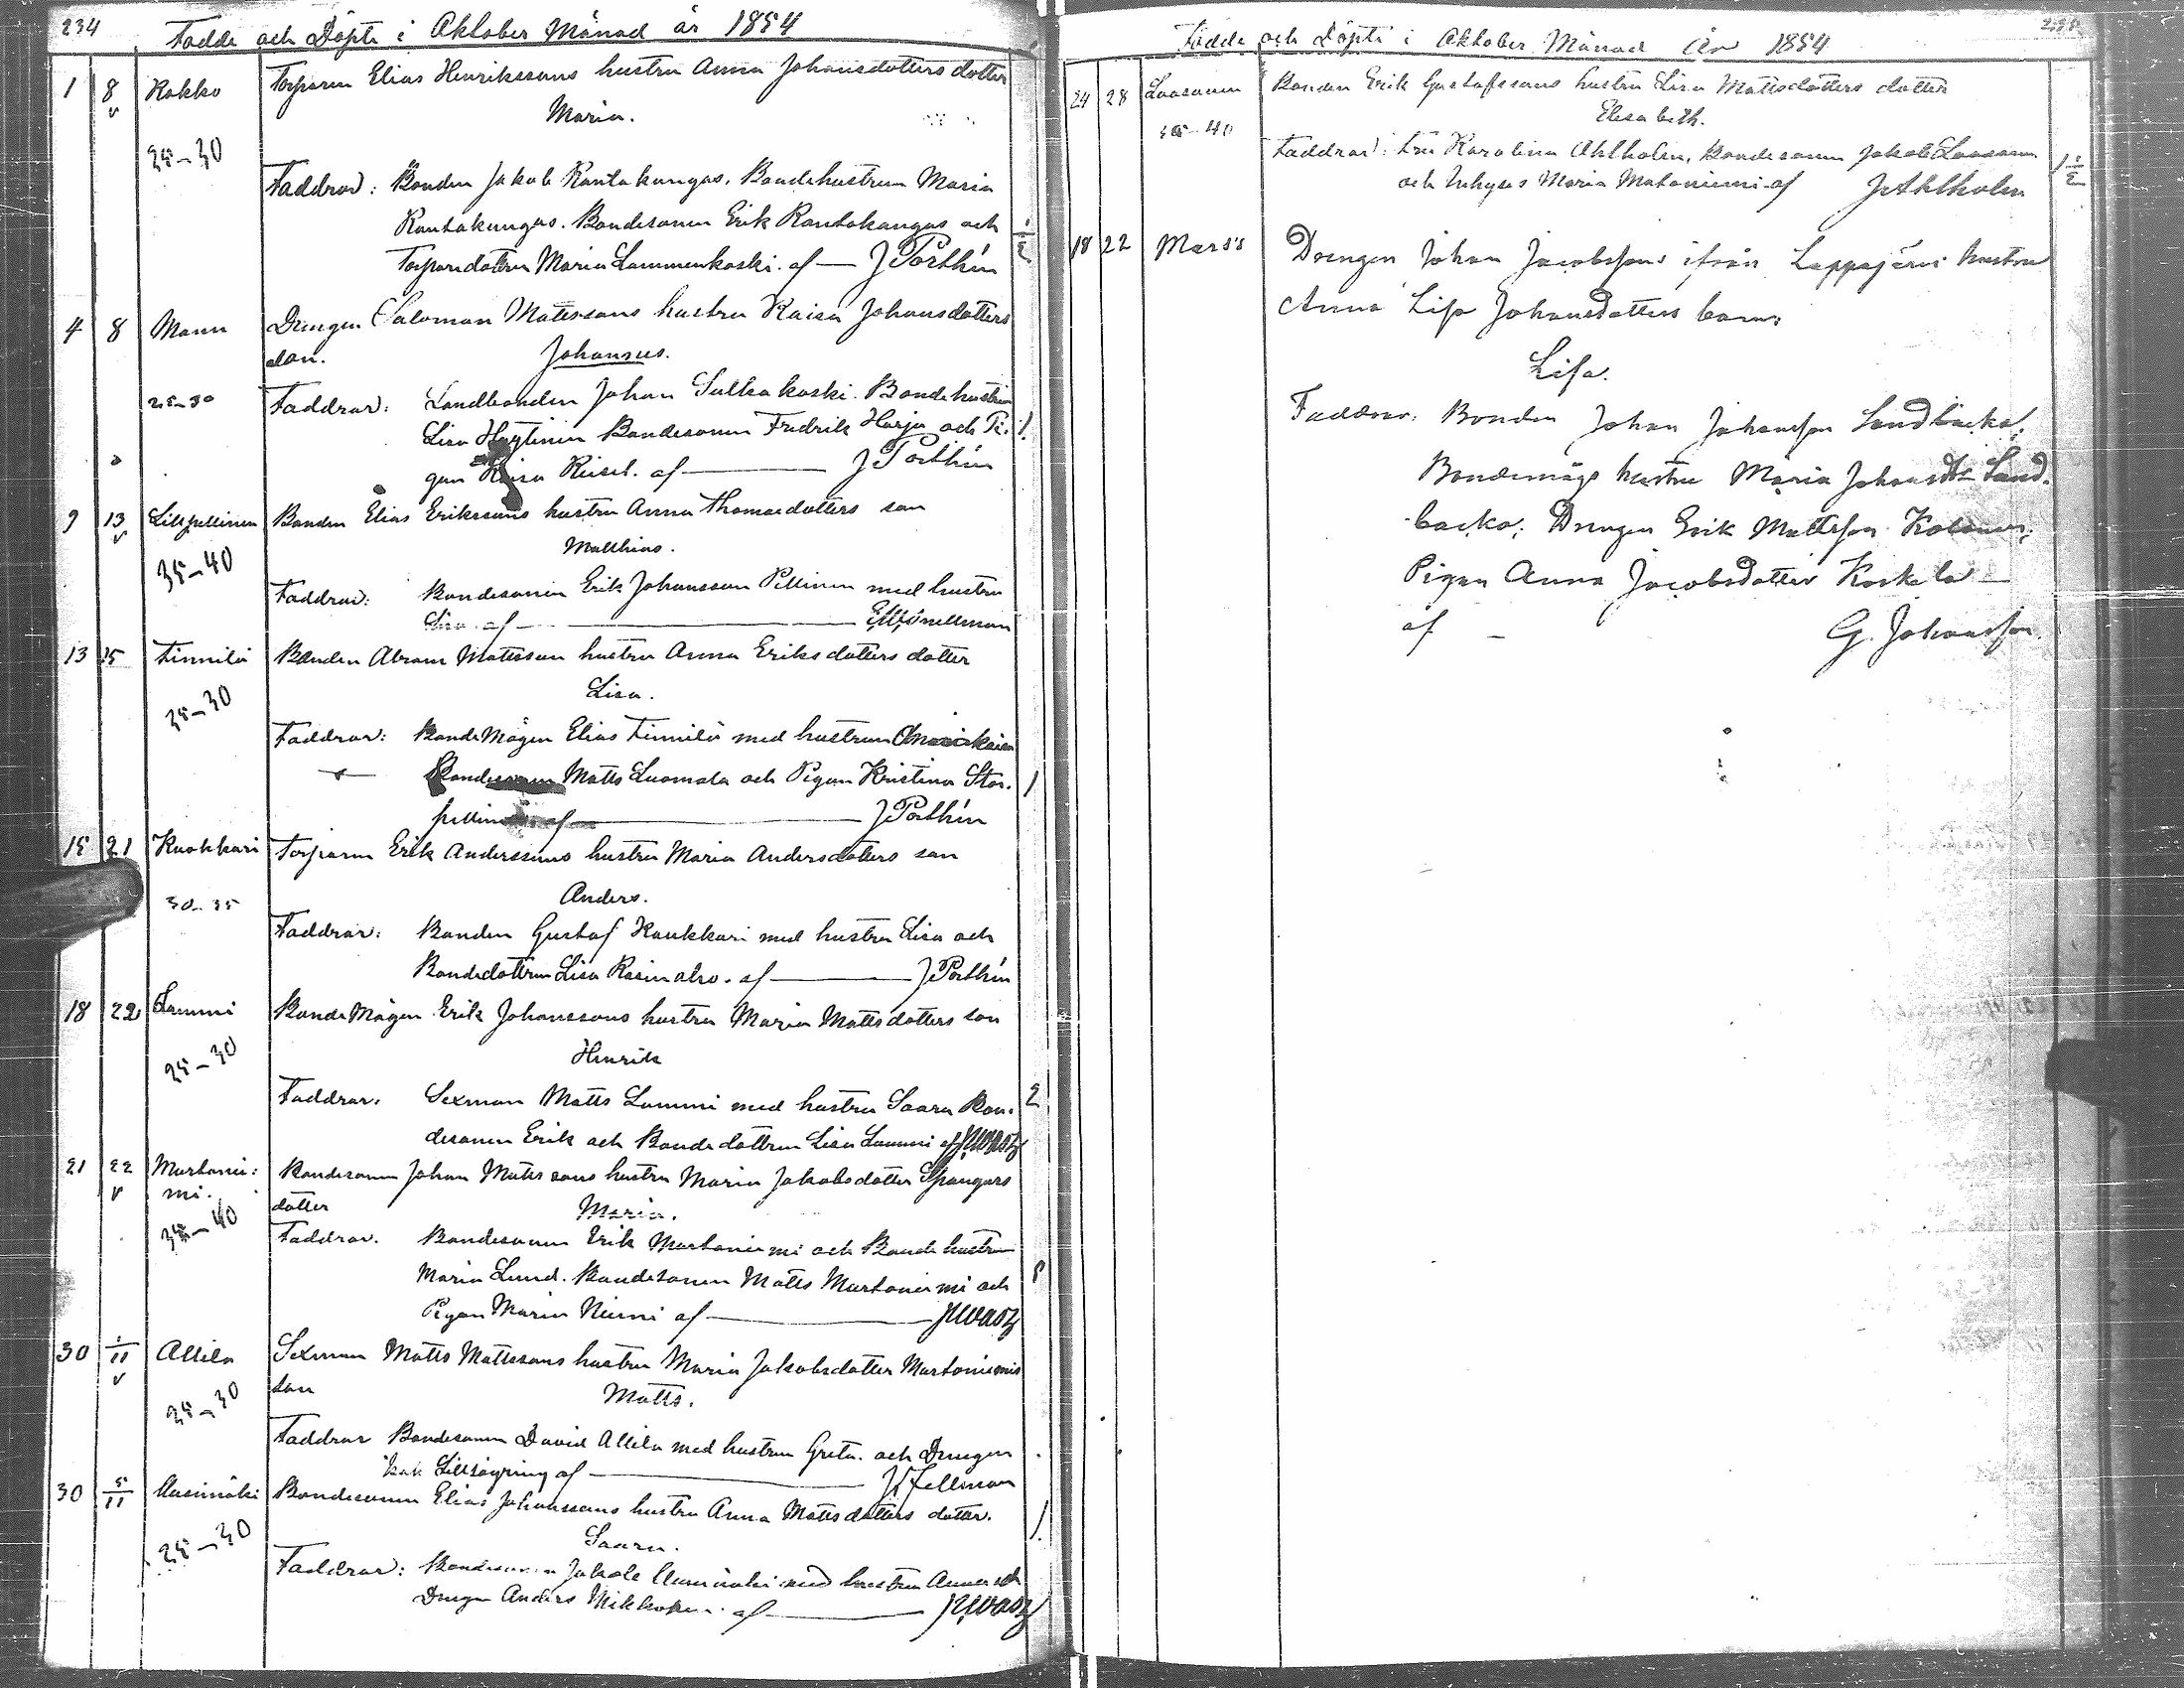 234
Födde och Döpte i Oktober Månad år 1854
1 8 Kokko Torparen Elias Henrikssons hustru Anna Johansdotters dotter
v
Maria.
25-30
Faddrar: Bonden Jakob Rantakangas. Bondehustrun Maria
Rantakangas. Bondesonen Erik Rantakangas och
Torparedottren Maria Lammenkoski. af — J Porthin
4 8 Mann Drengen Salomon Matssons hustru Kaisa Johansdotters
son. Johannes.
25-30
Faddrar: Landbonden Johan Sulkakoski. Bondehustrun
Lisa Hyytinen Bondesonen Fredrik Harju och Pi- 1.
gan Kaisa af — J Porthin
9 13 Lillpellinen Bonden Elias Erikssons hustru Anna Thomasdotters son
v
Matthias.
35-40
Faddrar: Bondesonen Erik Johansson Pellinen med hustru
Lisa. af —
13 15 Finnilä Bonden Abram Matsson hustru Anna Eriksdotters dotter
Lisa.
25-30
Faddrar: BondeMågen Elias Finnilä med hustrun
Matts Luomala och Pigan Kristina Stor- 1
pellinen af — J Porthin
15 21 Kuokkari Torparen Erik Anderssons hustru Maria Andersdotters son
30-35
Anders.
Faddrar: Bonden Gustaf Kaukkari med hustru Lisa och
Bondedottren Lisa af — J Porthin
18 22 Lammi BondeMågen Erik Johanssons hustru Maria Mattsdotters son
Henrik
25-30
Faddrar: Sexman Matts Lammi med hustru Saara Bon- 2
desonen Erik och Bondedottren Lisa Lammi af JWasz
21 22 Martonie- Bondesonen Johan Matssons hustru Maria Jakobsdotter Spangars
v mi. dotter Maria.
35-40
Faddrar. Bondesonen Erik Martoniemi och Bondehustrun
Maria Lund. Bondesonen Matts Martoniemi och
Pigan Maria Niemi af — JWasz
30 1/11 Allila Sexman Matts Mattssons hustru Maria Jakobsdotter Martoniemis
v son Matts.
25-30
Faddrar Bondesonen David Allila med hustrun Greta. och Drengen
Isak af — Fellman
30 5/11 Uusimäki Bondesonen Elias Johanssons hustru Anna Mattsdotters dotter. 1.
Saara.
25-30
Faddrar: Bondesonen Jakob Uusimäki med hustrun Anna och
Drengen Anders af — JWasz
Födde och Döpte i Oktober Månad År 1854
24 28 Laasanen Bonden Erik Gustafssons hustru Lisa Mattsdotters dotter
Elisabeth.
35-40
Faddrar: Fru Karolina Ahlholm, Bondesonen Jakob Laasanen
och Inhyses Maria Mataniemi af J Ahlholm
18 22 Marss Drengen Johan Jacobssons ifrån Lappajärvi hustru
Anna Lisa Johansdotters barn:
Lisa.
Faddrar: Bonden Johan Johansson Sandbacka;
Bondemågs hustru Maria Johansdtr Sand-
backa; Drengen Erik Mattsson
Pigan Anna Jacobsdotter Koskela —
af — G. Johansson.